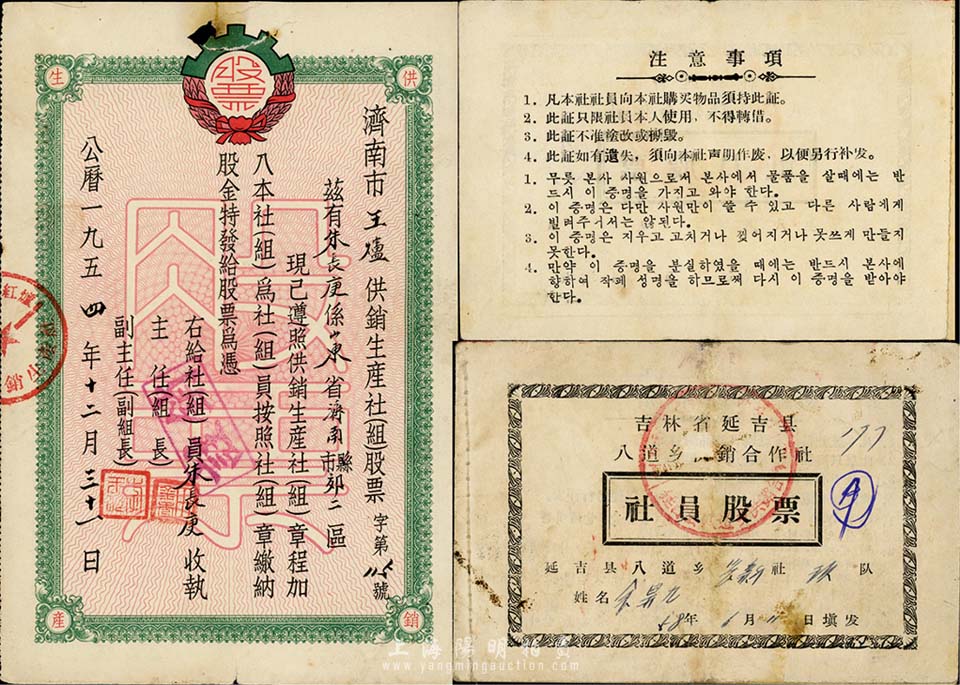 供
生
銷
產
股票
濟南市王爐供銷生產社組股票 字第 號
茲有朱長庚係山東省濟南市縣郊二區
現已遵照供銷生產社(組)章程加
入本社(組)爲社(組)員按照社(組)章繳納
股金特發給股票爲憑
右給社(組)員朱長庚收執
主任(組長)
副主任(副組長)
公曆一九五四年十二月三十一日
注意事項
1. 凡本社社員向本社購买物品須持此証。
2. 此証只限社員本人使用，不得轉借。
3. 此証不准塗改或撕毀。
4. 此証如有遺失，須向本社声明作废，以便另行补发。
1. 무릇 본사 사원으로서 본사에서 물품을 살때에는 반
드시 이 증명을 가지고 와야 한다.
2. 이 증명은 다만 사원만이 쓸 수 있고 다른 사람에게
빌려주어서는 않된다.
3. 이 증명은 지우고 고치거나 찢어지거나 못쓰게 만들지
못한다.
4. 만약 이 증명을 분실하였을 때에는 반드시 본사에
향하여 작페 성명을 하므로써 다시 이 증명을 받아야
한다.
吉林省延吉县
八道乡供銷合作社
177
社員股票
延吉县八道乡 社 队
姓名
58年6月11日塡发
上海陽明拍賣
www.yangmingauction.com